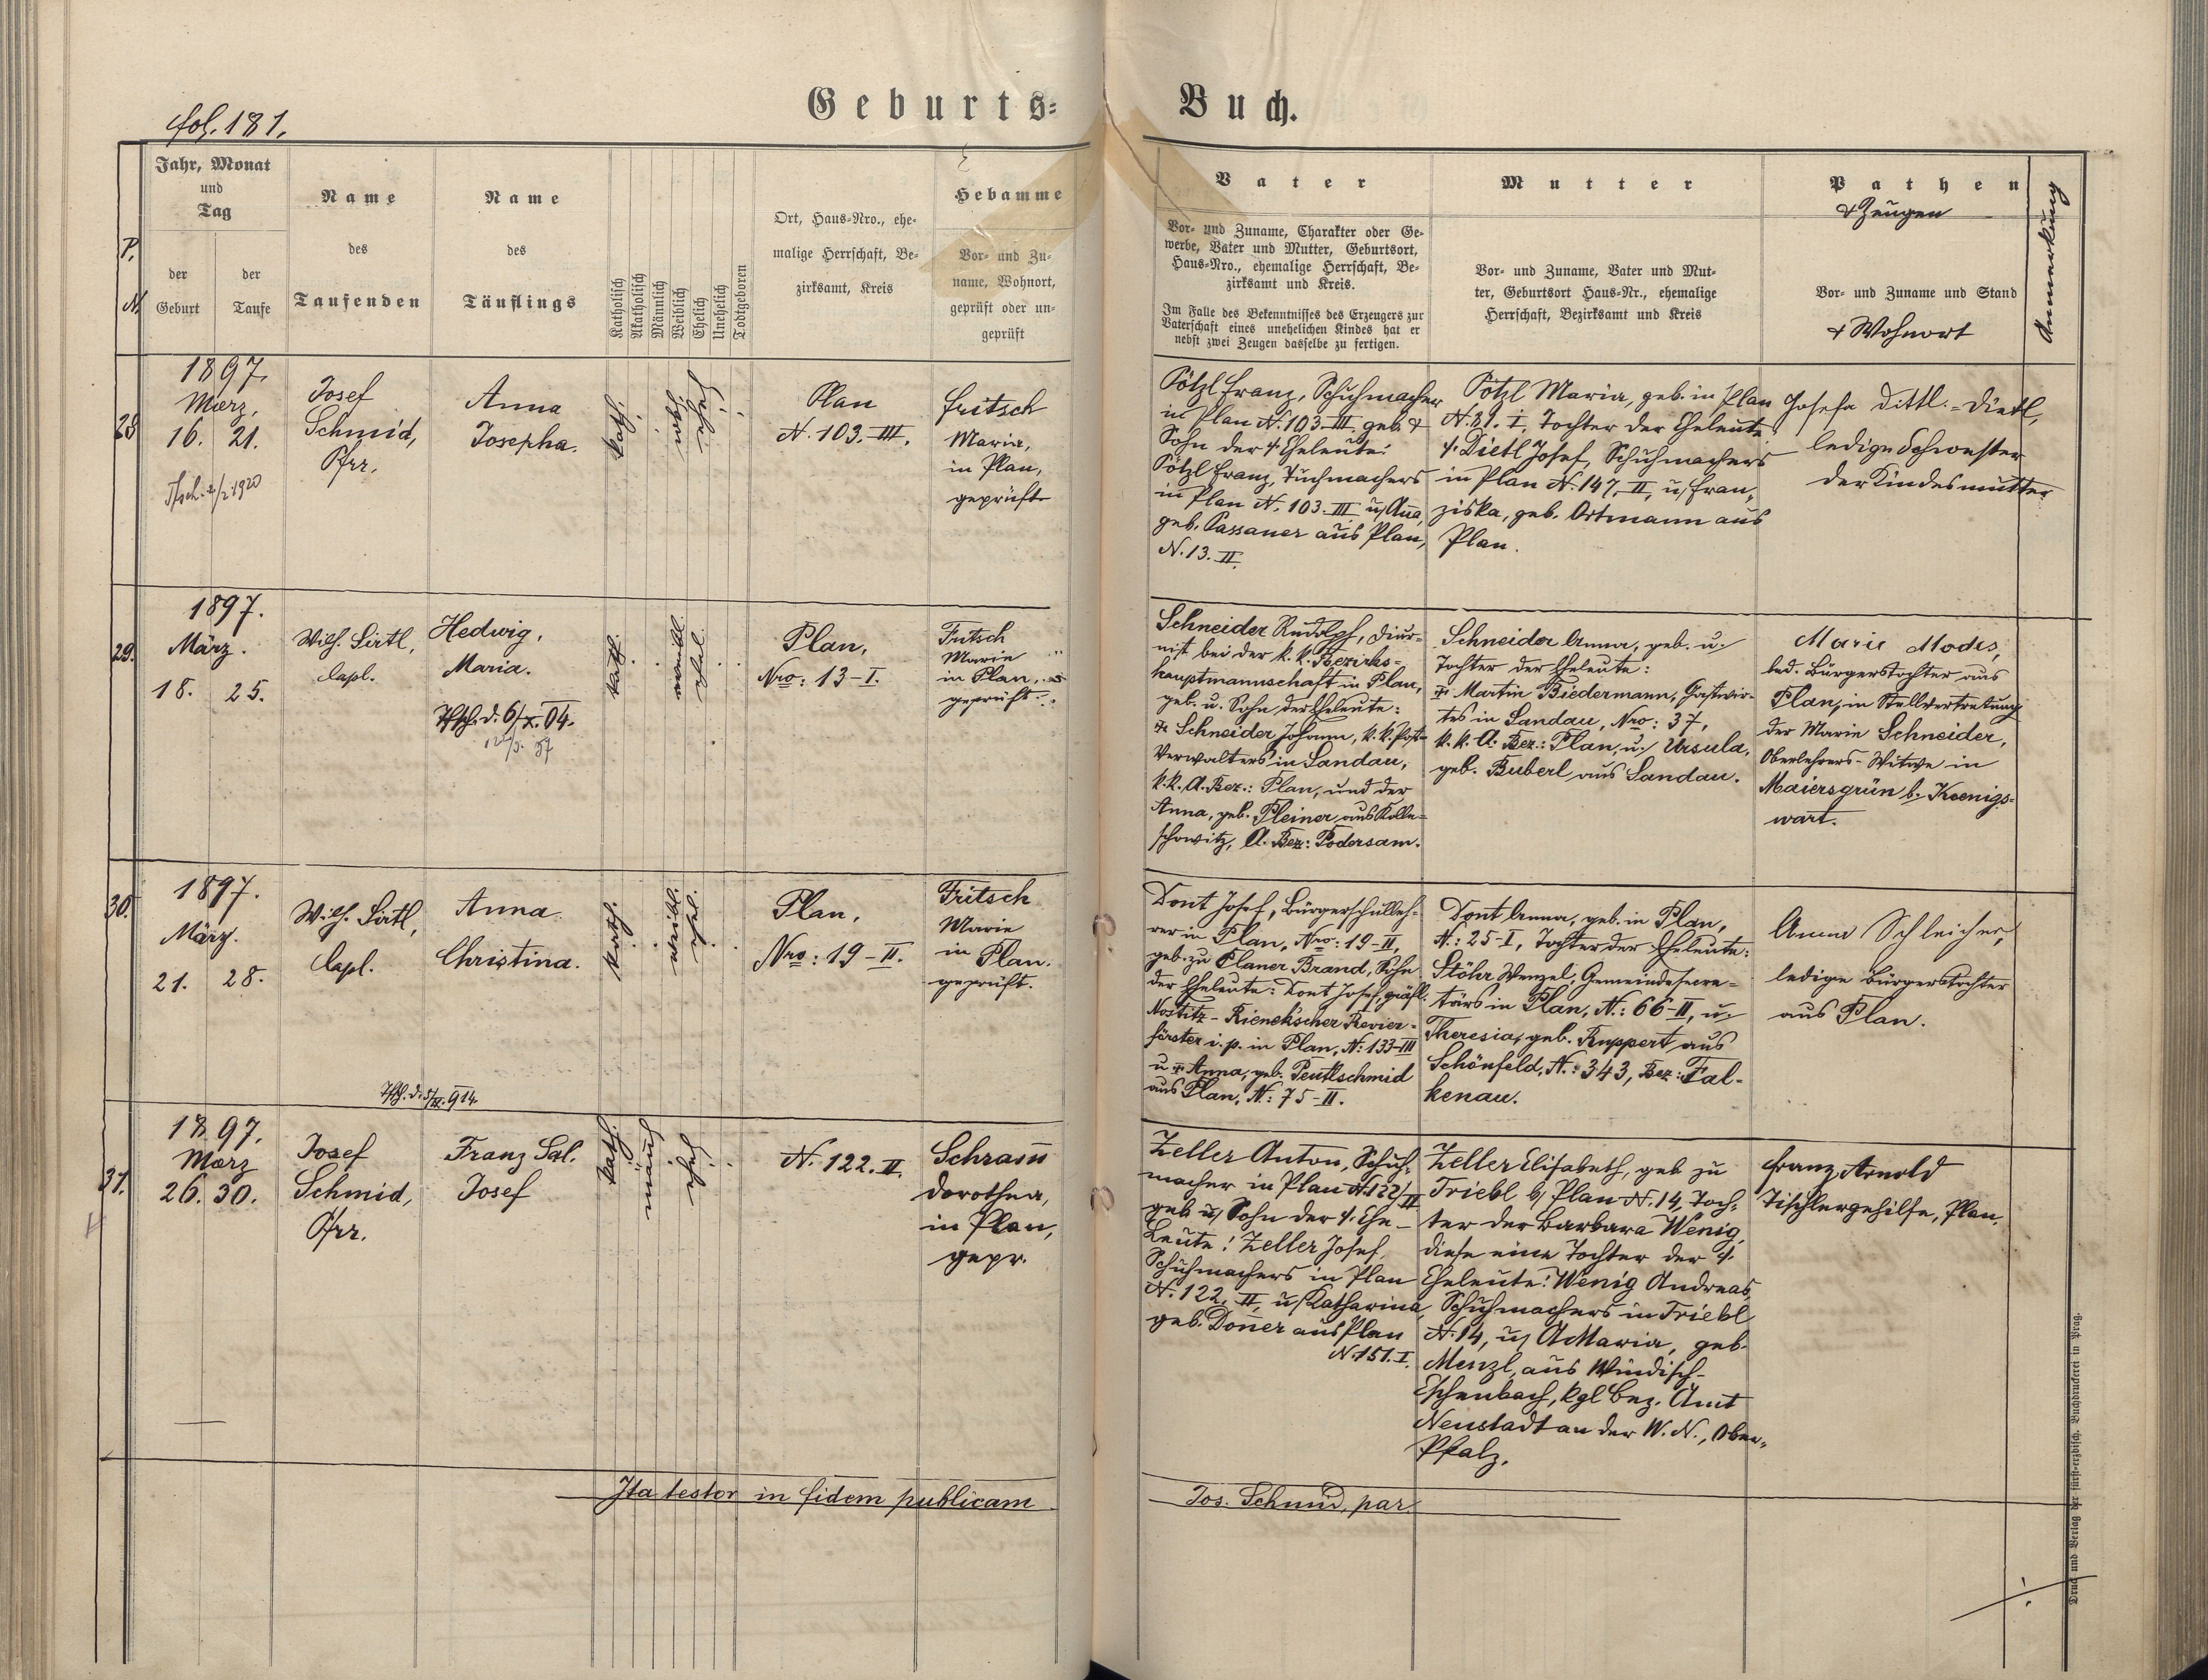 Geburts-Buch.
fol. 181.
P. N.
Jahr, Monat
und
Tag
der
Geburt
der
Taufe
Name
des
Taufenden
Name
des
Täuflings
Katholisch
Akatholisch
Männlich
Weiblich
Ehelich
Unehelich
Todtgeboren
Ort, Haus-Nro., ehe-
malige Herrschaft, Be-
zirksamt, Kreis
Hebamme
Vor- und Zu-
name, Wohnort,
geprüft oder un-
geprüft
Vater
Vor- und Zuname, Charakter oder Ge-
werbe, Vater und Mutter, Geburtsort,
Haus-Nro., ehemalige Herrschaft, Be-
zirksamt und Kreis.
Im Falle des Bekenntnisses des Erzeugers zur
Vaterschaft eines unehelichen Kindes hat er
nebst zwei Zeugen dasselbe zu fertigen.
Mutter
Vor- und Zuname, Vater und Mut-
ter, Geburtsort Haus-Nr., ehemalige
Herrschaft, Bezirksamt und Kreis
Pathen
& Zeugen
Vor- und Zuname und Stand
& Wohnort
Anmerkung
28.
1897.
Maerz,
16. 21.
Josef
Schmid,
Pfrr.
Anna
Josepha.
kath.
weibl.
ehel.
Plan
N. 103. III.
Fritsch
Maria,
in Plan,
geprüft
Pötzl Franz, Schuhmacher
in Plan N. 103. III. geb. &
Sohn der † Eheleute:
Pötzl Franz, Tuchmachers
in Plan N. 103. III u/ Anna,
geb. Passauer aus Plan,
N. 13. II.
Pötzl Maria, geb. in Plan
N. 31. I, Tochter der Eheleute
†. Dietl Josef, Schuhmachers
in Plan N. 147, II, u/ Fran-
ziska, geb. Ortmann aus
Plan.
Josefa Dittl. = Dietl,
ledige Schwester
der Kindesmutter
29.
1897.
März.
18. 25.
Wilh. Sirtl,
Capl.
Hedwig,
Maria.
Tfsch. d. 6/X. 04.
kath.
weibl.
ehel.
Plan,
Nro: 13-I.
Fritsch
Marie
in Plan,
geprüft.
Schneider Rudolf, Diur-
nist bei der k. k. Bezirks-
hauptmannschaft in Plan,
geb. u. Sohn der Eheleute:
† Schneider Johann, k. k. Post-
Verwalters in Sandau,
k. k. A. Bez.: Plan, und der
Anna, geb. Pleiner aus Kolle-
schowitz, A. Bez: Podersam.
Schneider Anna, geb. u.
Tochter der Eheleute:
† Martin Biedermann, Gastwir-
tes in Sandau, Nro: 37,
k. k. A. Bez.: Plan, u. Ursula,
geb. Buberl aus Sandau.
Marie Modes,
led. Bürgerstochter aus
Plan, in Stellvertretung
der Marie Schneider,
Oberlehrers-Witwe in
Maiersgrün b. Koenigs-
wart.
30.
1897.
März.
21. 28.
Wilh. Sirtl,
Capl.
Anna
Christina.
kath.
weibl.
ehel.
Plan,
Nro: 19-II.
Fritsch
Marie
in Plan.
geprüft.
Dont Josef, Bürgerschulleh-
rer in Plan, Nro: 19-II,
geb. zu Planer Brand, Sohn
der Eheleute: Dont Josef, gräfl.
Nostitz-Rieneck'scher Revier-
förster i. p. in Plan, N: 133-III
u † Anna, geb. Peutlschmid
aus Plan, N: 75-II.
Dont Anna, geb. in Plan,
N.: 25-I, Tochter der Eheleute:
Stöhr Wenzel, Gemeindesecre-
tärs in Plan, N.: 66-II, u.
Theresia, geb. Ruppert aus
Schönfeld, N.: 343, Bez: Fal-
kenau.
Anna Schleicher,
ledige Bürgerstochter
aus Plan.
31.
1897.
Maerz
26. 30.
Josef
Schmid,
Pfrr.
Franz Sal.
Josef
kath.
männl.
ehel.
N. 122. II.
Schram̅
Dorothea,
in Plan,
gepr.
Zeller Anton, Schuh-
macher in Plan N. 122/II
geb. u/ Sohn der †. Ehe-
Leute: Zeller Josef,
Schuhmachers in Plan
N. 122, II, u/ Katharina,
geb. Don̅er aus Plan
N. 151. I.
Zeller Elisabeth, geb. zu
Triebl b/ Plan N. 14, Toch-
ter der Barbara Wenig,
diese eine Tochter der †.
Eheleute: Wenig Andreas,
Schuhmachers in Triebl
N. 14, u/ A. Maria, geb.
Menzl, aus Windisch-
Eschenbach, kgl Bez. Amt
Neustadt an der W. N., Ober-
Pfalz.
Franz Arnold
Tischlergehilfe, Plan.
Ita testor in fidem publicam Jos. Schmid, par.
Druck und Verlag der fürst-erzbisch. Buchdruckerei in Prag.